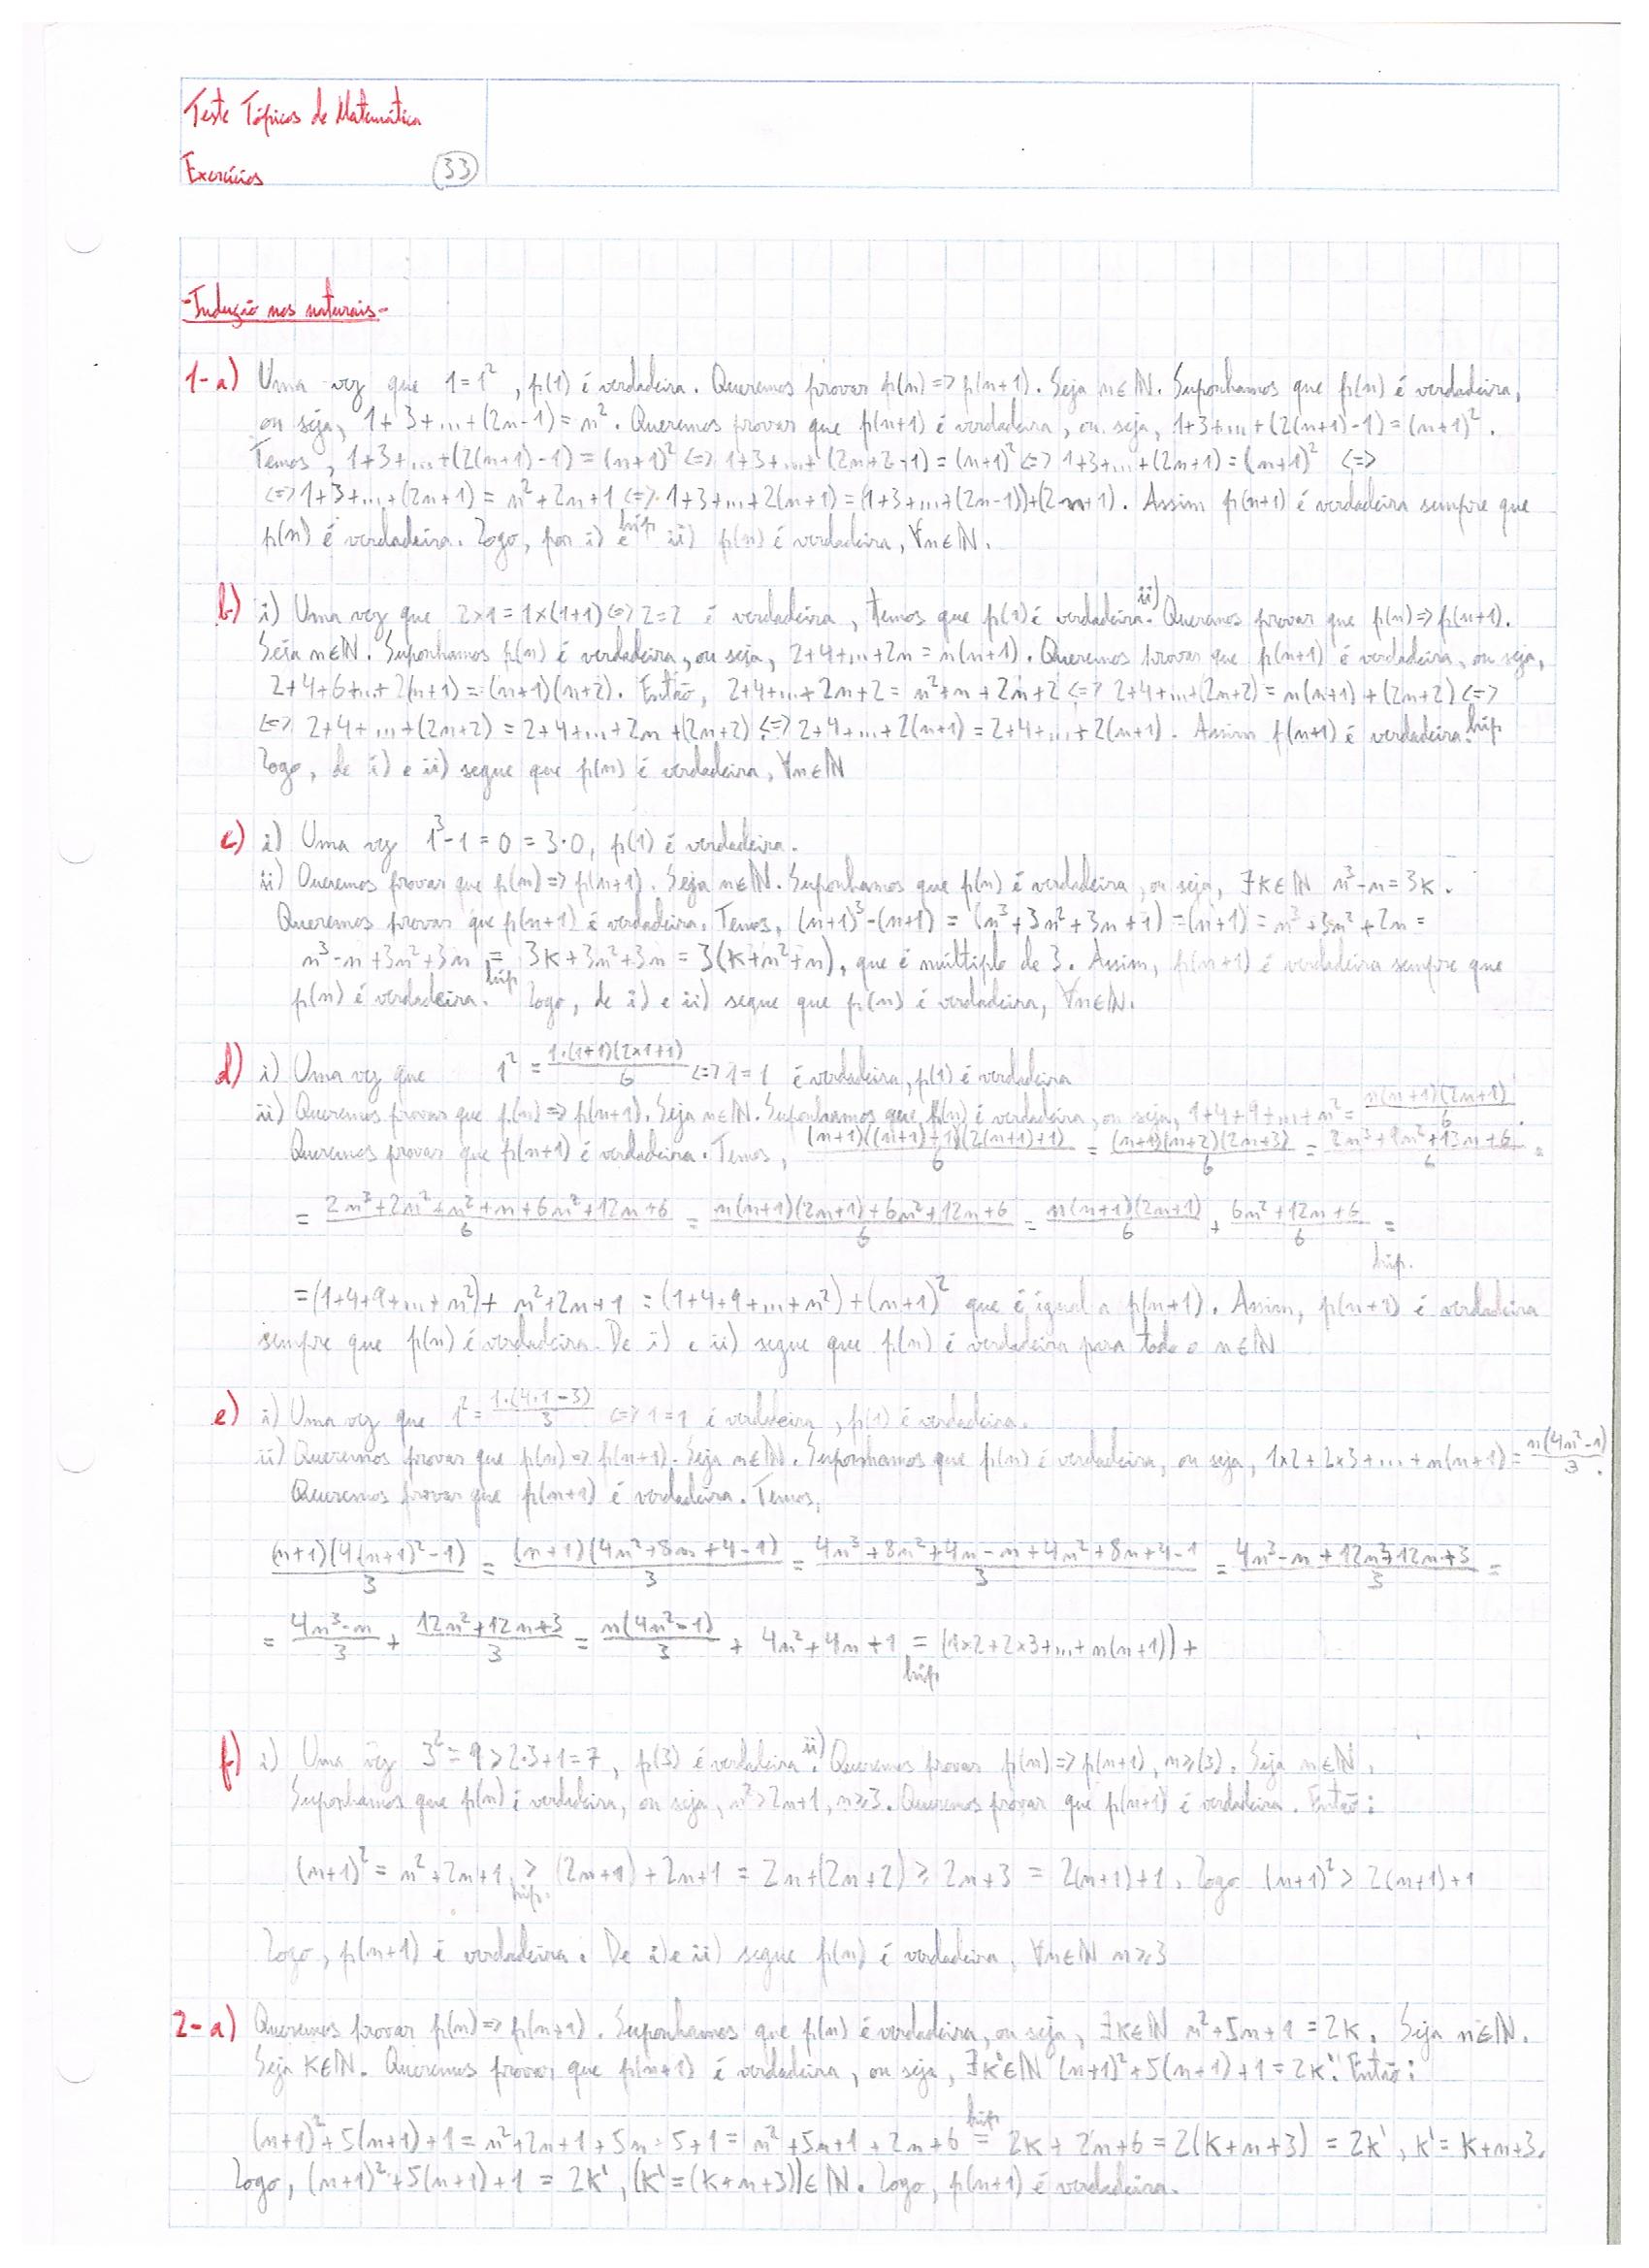 Teste Tópicos de Matemática
Exercícios (33)
-Indução nos naturais-
1-a) Uma vez que 1=1², p(1) é verdadeira. Queremos provar p(n)=>p(n+1). Seja n∈ℕ. Suponhamos que p(n) é verdadeira,
ou seja, 1+3+...+(2n-1)=n². Queremos provar que p(n+1) é verdadeira, ou seja, 1+3+...+(2(n+1)-1)=(n+1)².
Temos, 1+3+...+(2(n+1)-1)=(n+1)² <=> 1+3+...+(2n+2-1)=(n+1)² <=> 1+3+...+(2n+1)=(n+1)² <=>
<=> 1+3+...+(2n+1)=n²+2n+1 <=> 1+3+...+2(n+1)=(1+3+...+(2n-1))+(2n+1). Assim p(n+1) é verdadeira sempre que
hip
p(n) é verdadeira. Logo, por i) e ii) p(n) é verdadeira, ∀n∈ℕ.
b) i) Uma vez que 2×1=1×(1+1)<=>2=2 é verdadeira, temos que p(1) é verdadeira. ii) Queremos provar que p(n)=>p(n+1).
Seja n∈ℕ. Suponhamos p(n) é verdadeira, ou seja, 2+4+...+2n=n(n+1). Queremos provar que p(n+1) é verdadeira, ou seja,
2+4+6+...+2(n+1)=(n+1)(n+2). Então, 2+4+...+2n+2=n²+n+2n+2 <=> 2+4+...+(2n+2)=n(n+1)+(2n+2) <=>
<=> 2+4+...+(2n+2)=2+4+...+2n+(2n+2) <=> 2+4+...+2(n+1)=2+4+...+2(n+1). Assim p(n+1) é verdadeira. hip
Logo, de i) e ii) segue que p(n) é verdadeira, ∀n∈ℕ
c) i) Uma vez 1³-1=0=3·0, p(1) é verdadeira.
ii) Queremos provar que p(n)=>p(n+1). Seja n∈ℕ. Suponhamos que p(n) é verdadeira, ou seja, ∃k∈ℕ n³-n=3k.
Queremos provar que p(n+1) é verdadeira. Temos, (n+1)³-(n+1)=(n³+3n²+3n+1)-(n+1)=n³+3n²+2n=
n³-n+3n²+3n = 3k+3n²+3n=3(k+n²+n), que é múltiplo de 3. Assim, p(n+1) é verdadeira sempre que
hip
p(n) é verdadeira. Logo, de i) e ii) segue que p(n) é verdadeira, ∀n∈ℕ.
d) i) Uma vez que 1²=1·(1+1)(2×1+1)/6 <=> 1=1 é verdadeira, p(1) é verdadeira
ii) Queremos provar que p(n)=>p(n+1). Seja n∈ℕ. Suponhamos que p(n) é verdadeira, ou seja, 1+4+9+...+n²=n(n+1)(2n+1)/6.
Queremos provar que p(n+1) é verdadeira. Temos, (n+1)((n+1)+1)(2(n+1)+1)/6 = (n+1)(n+2)(2n+3)/6 = 2n³+9n²+13n+6/6 =
= 2n³+2n²+n²+n+6n²+12n+6/6 = n(n+1)(2n+1)+6n²+12n+6/6 = n(n+1)(2n+1)/6 + 6n²+12n+6/6 =
hip.
=(1+4+9+...+n²)+n²+2n+1=(1+4+9+...+n²)+(n+1)² que é igual a p(n+1). Assim, p(n+1) é verdadeira
sempre que p(n) é verdadeira. De i) e ii) segue que p(n) é verdadeira para todo o n∈ℕ
e) i) Uma vez que 1²=1·(4·1-3)/3 <=> 1=1 é verdadeira, p(1) é verdadeira.
ii) Queremos provar que p(n)=>p(n+1). Seja n∈ℕ. Suponhamos que p(n) é verdadeira, ou seja, 1×2+2×3+...+n(n+1)=n(4n²-1)/3.
Queremos provar que p(n+1) é verdadeira. Temos,
(n+1)(4(n+1)²-1)/3 = (n+1)(4n²+8n+4-1)/3 = 4n³+8n²+4n-n+4n²+8n+4-1/3 = 4n³-n+12n²+12n+3/3 =
= 4n³-n/3 + 12n²+12n+3/3 = n(4n²-1)/3 + 4n²+4n+1 = (1×2+2×3+...+n(n+1))+
hip
f) i) Uma vez 3²=9>2·3+1=7, p(3) é verdadeira. ii) Queremos provar p(n)=>p(n+1), n≥(3). Seja n∈ℕ.
Suponhamos que p(n) é verdadeira, ou seja, n²>2n+1, n≥3. Queremos provar que p(n+1) é verdadeira. Então:
(n+1)²=n²+2n+1 > (2n+1)+2n+1=2n+(2n+2)≥2n+3=2(n+1)+1. Logo (n+1)²>2(n+1)+1
hip.
Logo, p(n+1) é verdadeira. De i) e ii) segue p(n) é verdadeira, ∀n∈ℕ n≥3
2-a) Queremos provar p(n)=>p(n+1). Suponhamos que p(n) é verdadeira, ou seja, ∃k∈ℕ n²+5n+1=2k. Seja n∈ℕ.
Seja k∈ℕ. Queremos provar que p(n+1) é verdadeira, ou seja, ∃k'∈ℕ (n+1)²+5(n+1)+1=2k'. Então:
hip
(n+1)²+5(n+1)+1=n²+2n+1+5n+5+1=n²+5n+1+2n+6=2k+2n+6=2(k+n+3)=2k', k'=k+n+3.
Logo, (n+1)²+5(n+1)+1=2k', (k'=(k+n+3))∈ℕ. Logo, p(n+1) é verdadeira.